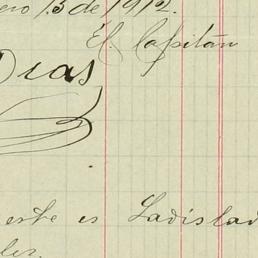 ero 13 de 1912.
El Capitán
Dias
este es Ladislad
ler.